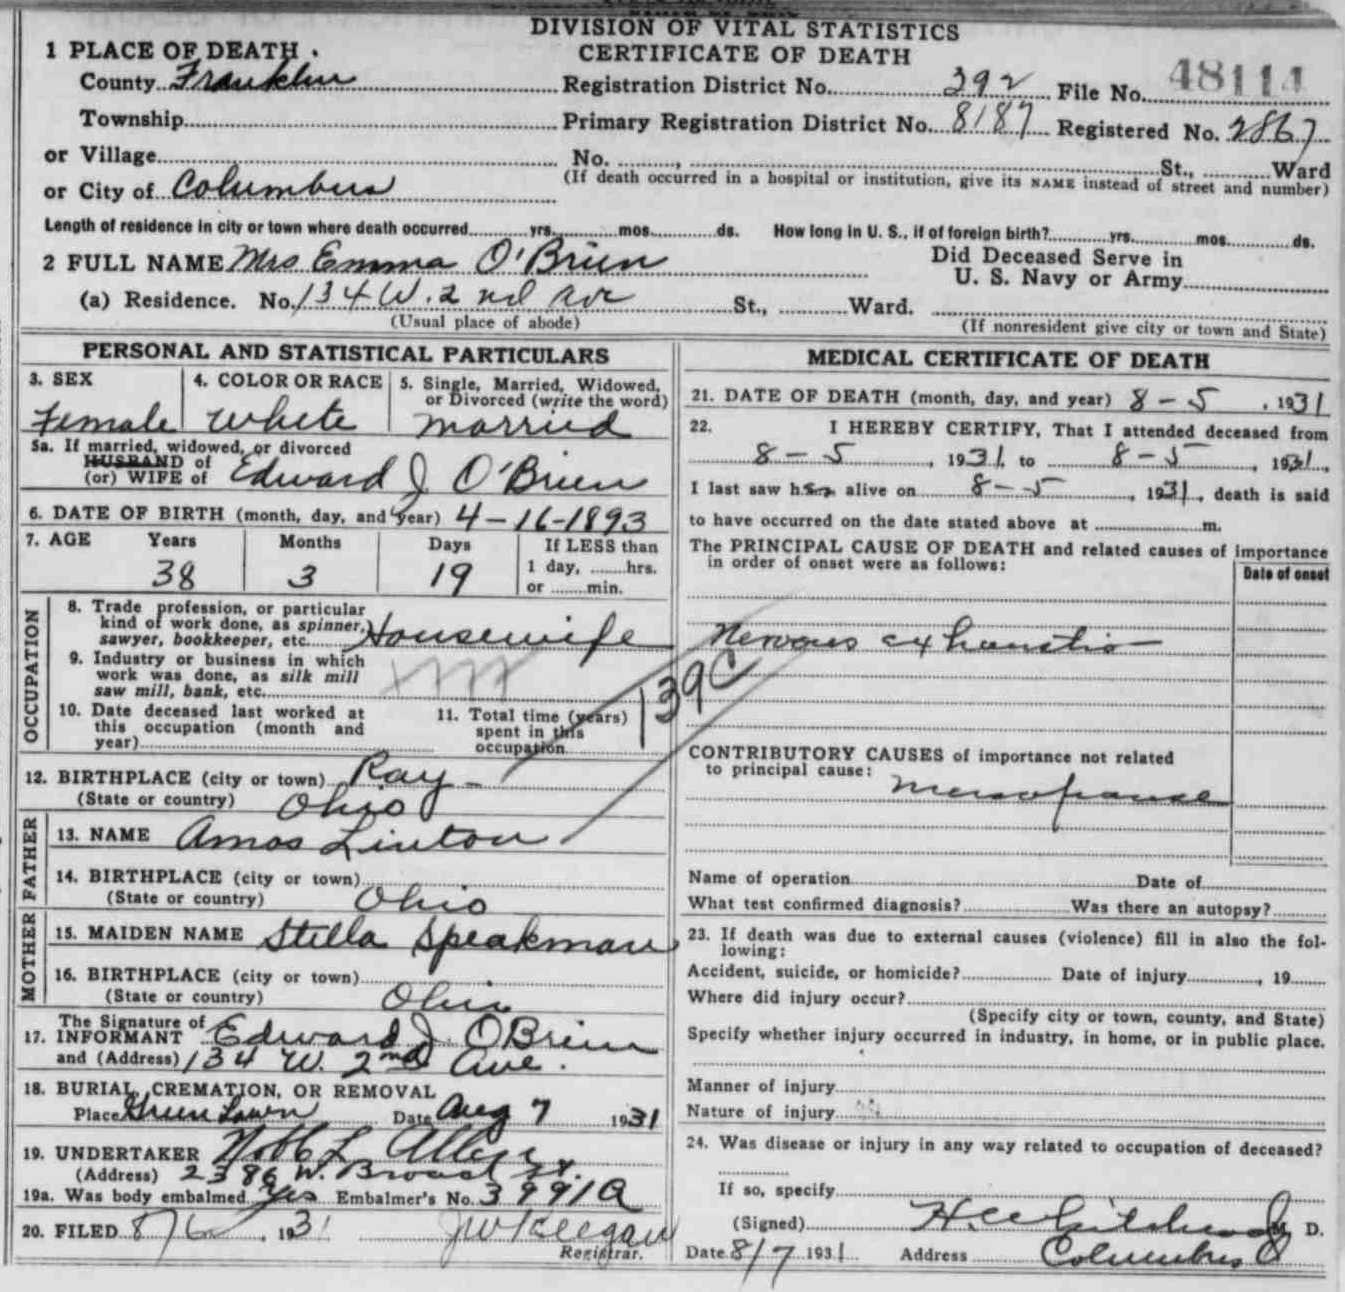 DIVISION OF VITAL STATISTICS
CERTIFICATE OF DEATH
1 PLACE OF DEATH.
County Franklin Registration District No. 392 File No. 48114
Township Primary Registration District No. 8187 Registered No. 2867
or Village No. , St., Ward
or City of Columbus (If death occurred in a hospital or institution, give its NAME instead of street and number)
Length of residence in city or town where death occurred yrs. mos. ds. How long in U. S., if of foreign birth? yrs. mos. ds.
2 FULL NAME Mrs Emma O'Brien Did Deceased Serve in
U. S. Navy or Army
(a) Residence. No. 134 W. 2nd Ave St., Ward.
(Usual place of abode) (If nonresident give city or town and State)
PERSONAL AND STATISTICAL PARTICULARS
3. SEX 4. COLOR OR RACE 5. Single, Married, Widowed,
or Divorced (write the word)
Female White Married
5a. If married, widowed, or divorced
HUSBAND of
(or) WIFE of Edward J O'Brien
6. DATE OF BIRTH (month, day, and year) 4-16-1893
7. AGE Years Months Days If LESS than
1 day, hrs.
or min.
38 3 19
OCCUPATION
8. Trade profession, or particular
kind of work done, as spinner,
sawyer, bookkeeper, etc. Housewife
9. Industry or business in which
work was done, as silk mill
saw mill, bank, etc.
10. Date deceased last worked at
this occupation (month and
year)
11. Total time (years)
spent in this
occupation
12. BIRTHPLACE (city or town) Ray
(State or country) Ohio
FATHER
13. NAME Amos Linton
14. BIRTHPLACE (city or town)
(State or country) Ohio
MOTHER
15. MAIDEN NAME Stella Speakman
16. BIRTHPLACE (city or town)
(State or country) Ohio
17. The Signature of
INFORMANT Edward J. O'Brien
and (Address) 134 W. 2nd Ave.
18. BURIAL, CREMATION, OR REMOVAL
Place Green Lawn Date Aug 7 1931
19. UNDERTAKER L Allen
(Address) 2386 W. Broad St.
19a. Was body embalmed Yes Embalmer's No. 3991A
20. FILED 8/6, 1931 JW Keegan
Registrar.
MEDICAL CERTIFICATE OF DEATH
21. DATE OF DEATH (month, day, and year) 8-5, 1931
22. I HEREBY CERTIFY, That I attended deceased from
8-5, 1931, to 8-5, 1931,
I last saw her alive on 8-5, 1931, death is said
to have occurred on the date stated above at m.
The PRINCIPAL CAUSE OF DEATH and related causes of importance
in order of onset were as follows:
Date of onset
Nervous exhaustio
139C
CONTRIBUTORY CAUSES of importance not related
to principal cause:
Menopause
Name of operation Date of
What test confirmed diagnosis? Was there an autopsy?
23. If death was due to external causes (violence) fill in also the fol-
lowing:
Accident, suicide, or homicide? Date of injury , 19
Where did injury occur?
(Specify city or town, county, and State)
Specify whether injury occurred in industry, in home, or in public place.
Manner of injury
Nature of injury
24. Was disease or injury in any way related to occupation of deceased?
If so, specify
(Signed) M. D.
Date 8/7 1931 Address Columbus O